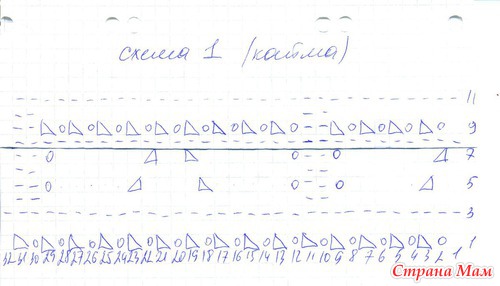 схема 1 (кайма)
11
9
7
5
3
1
32 31 30 29 28 27 26 25 24 23 22 21 20 19 18 17 16 15 14 13 12 11 10 9 8 7 6 5 4 3 2 1
Страна Мам